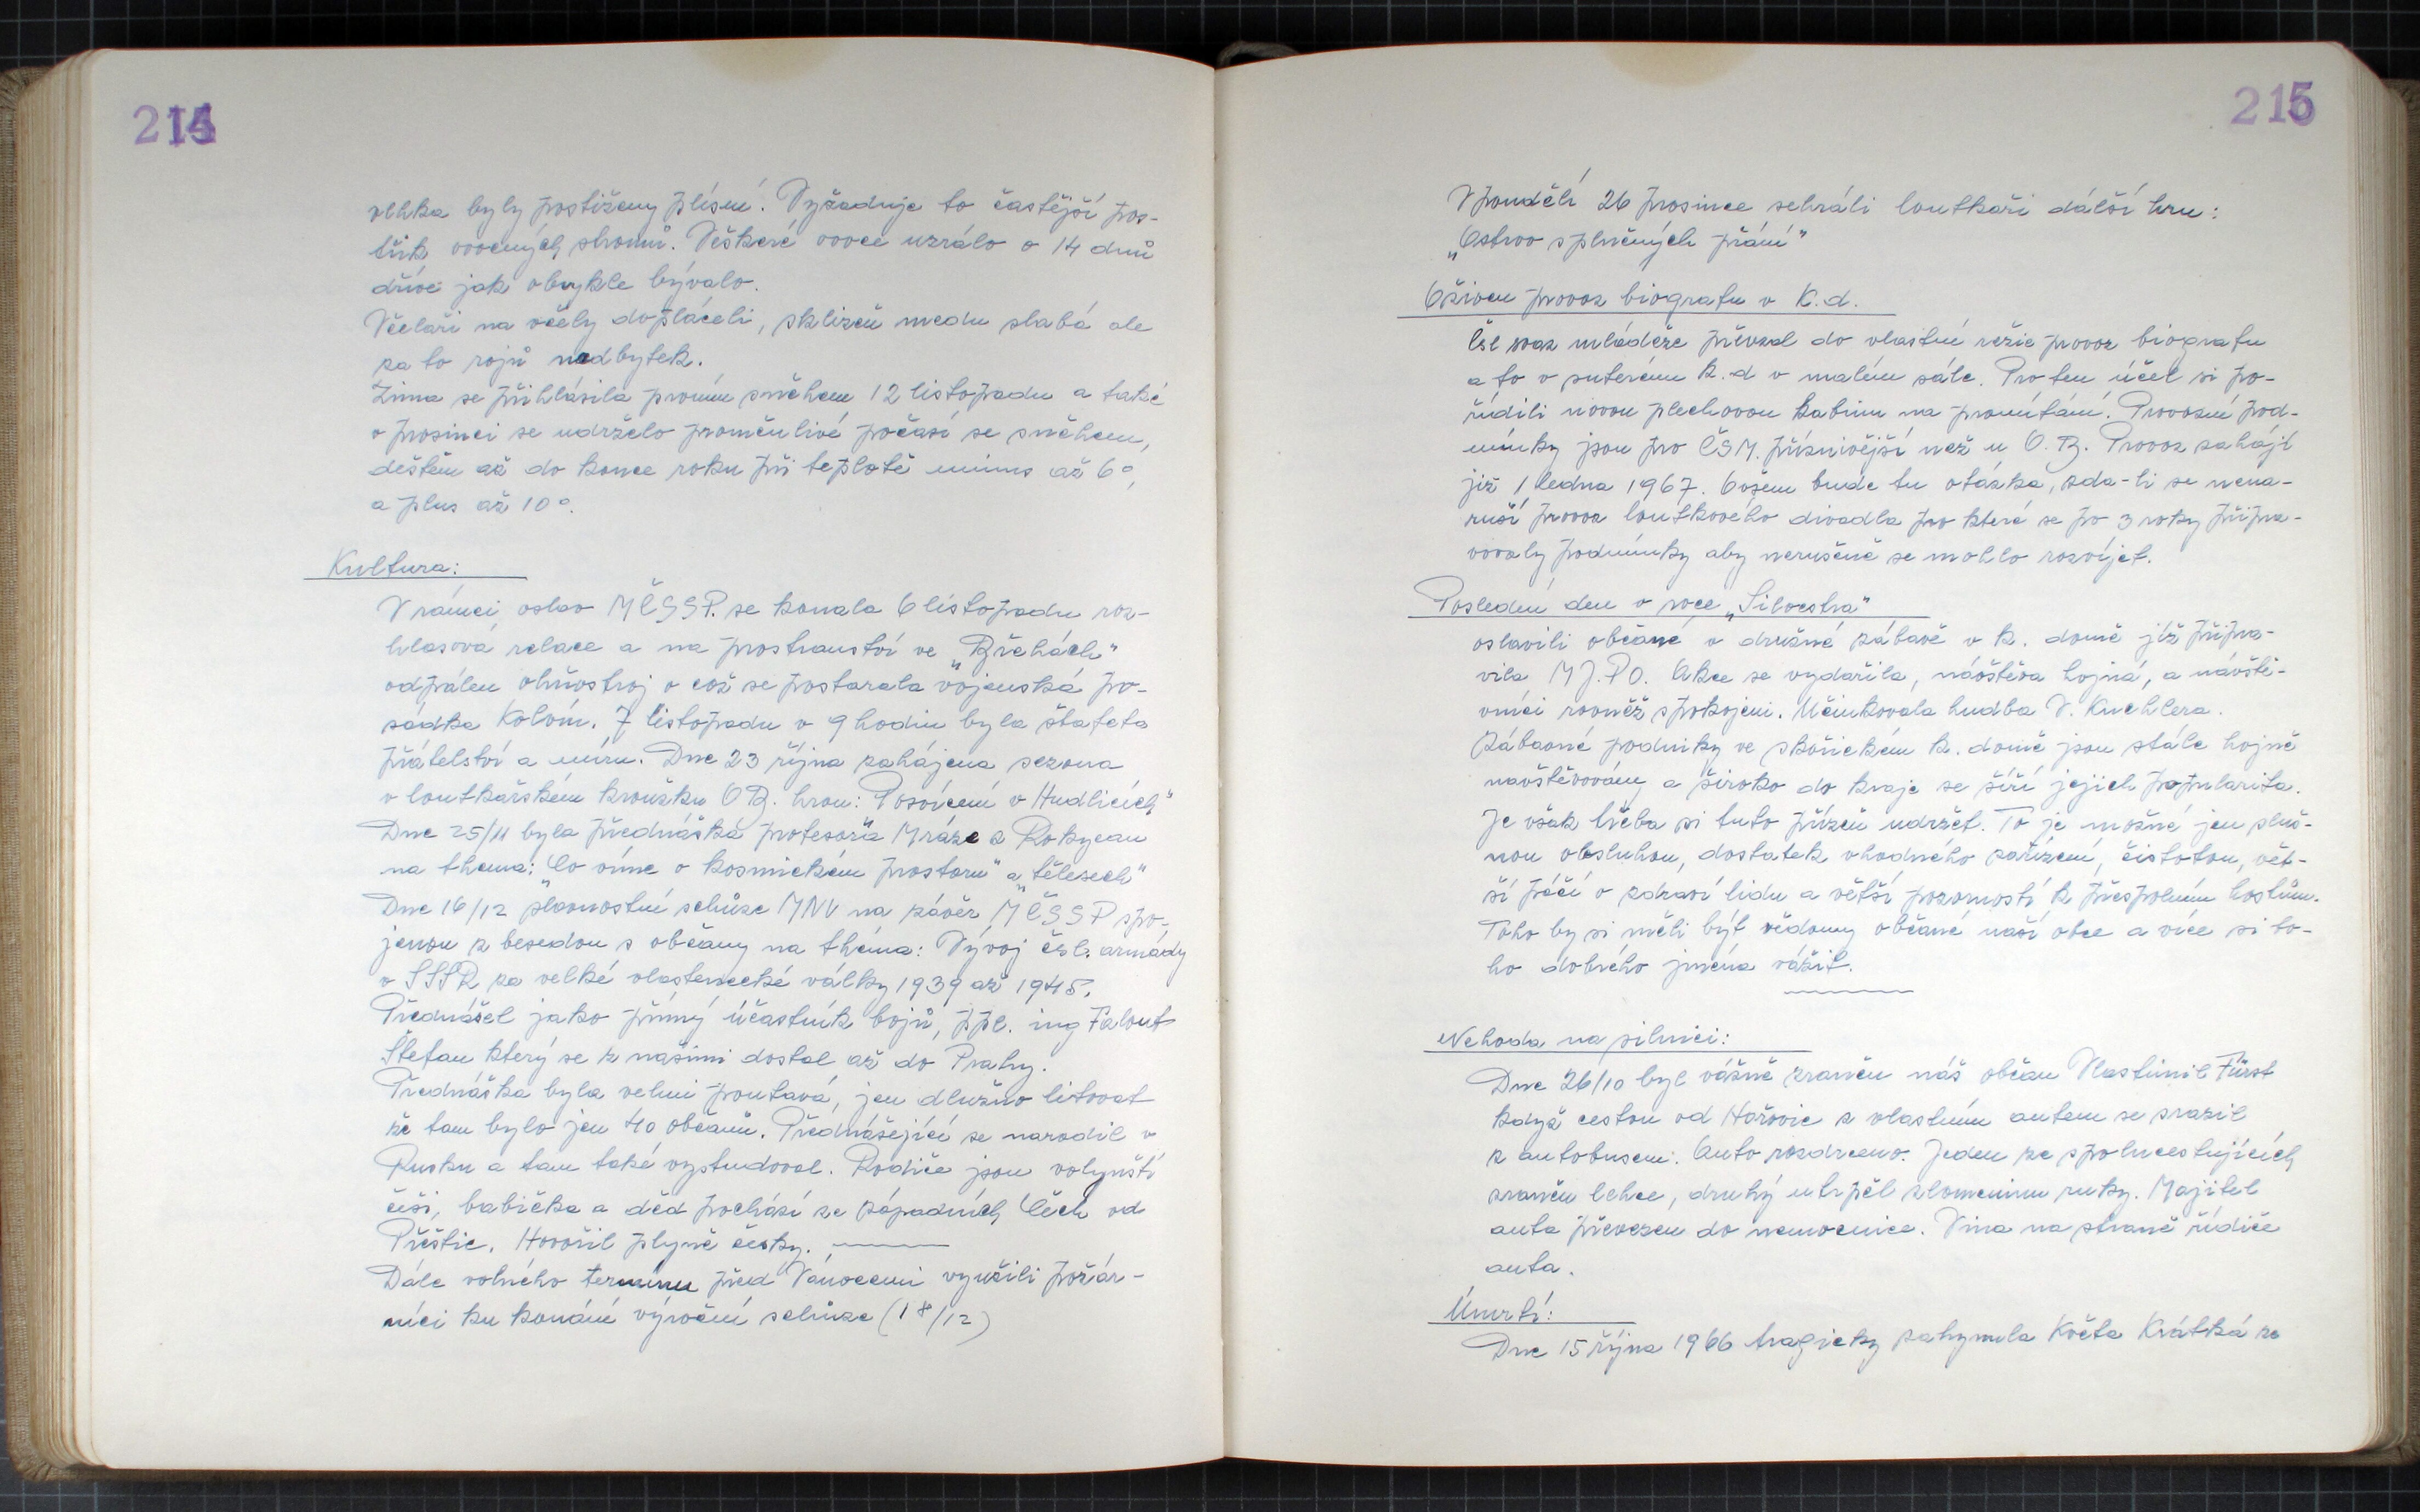 214
vlhka byly postiženy plísní. Vyžaduje to častější pos-
třik ovocných stromů. Veškeré ovoce uzrálo o 14 dnů
dříve jak obvykle bývalo.
Včelaři na včely dopláceli, sklizeň medu slabá ale
za to rojů nadbytek.
Zima se přihlásila prvním sněhem 12 listopadu a také
v prosinci se udrželo proměnlivé počasí se sněhem,
deštěm až do konce roku při teplotě minus až 6°,
a plus až 10°.
Kultura:
V rámci oslav MČSSP. se konala 6 listopadu roz-
hlasová relace a na prostranství ve „Břehách"
odpálen ohňostroj o což se postarala vojenská po-
sádka Kolvín. 7 listopadu v 9 hodin byla štafeta
přátelství a míru. Dne 23 října zahájena sezona
v loutkářském kroužku OB. hrou: Posvícení v Hudlicích"
Dne 25/11 byla přednáška profesora Mráze z Rokycan
na thema: „Co víme o kosmickém prostoru" a „tělesech"
Dne 16/12 slavnostní schůze MNV na závěr MČSSP spo-
jenou z besedou s občany na théma: Vývoj čsl. armády
v SSSR za velké vlastenecké války 1939 až 1945.
Přednášel jako přímý účastník bojů, ppl. ing Falout
Štefan který se z našimi dostal až do Prahy.
Přednáška byla velmi poutavá, jen dlužno litovat
že tam bylo jen 40 občanů. Přednášející se narodil v
Rusku a tam také vystudoval. Rodiče jsou volyňští
češi, babička a děd pochází ze západních Čech od
Přeštic. Hovořil plyně česky.
Dále volného termínu před Vánocemi využili požár-
níci ku konání výroční schůze (18/12)
215
V pondělí 26 prosince sehráli loutkaři dálší hru:
„Ostrov splněných přání"
Oživen provoz biografu v K.d.
Čsl svaz mládeže převzal do vlastní režie provoz biografu
a to v suterénu k.d v malém sále. Pro ten účel si po-
řídili novou plechovou kabinu na promítání. Provozní pod-
mínky jsou pro ČSM. příznivější než u O.B. Provoz zahájí
již 1 ledna 1967. Ovšem bude tu otázka, zda-li se nena-
ruší provoz loutkového divadla pro které se po 3 roky připra-
vovaly podmínky aby nerušeně se mohlo rozvíjet.
Poslední den v roce „Silvestra"
oslavili občané v družné zábavě v k. domě již připra-
vila MJ.PO. Akce se vydařila, návštěva hojná, a návště-
vníci rovněž spokojeni. Účinkovala hudba V. Kuchlera.
Zábavné podniky ve skořickém k. domě jsou stále hojně
navštěvovány a široko do kraje se šíří jejich popularita.
Je však třeba si tuto přízeň udržet. To je možné jen sluš-
nou obsluhou, dostatek vhodného zařízení, čistotou, vět-
ší péčí o zdraví lidu a větší pozorností k přespolním hostům.
Toho by si měli být vědomy občané naší obce a více si to-
ho dobrého jména vážit.
Nehoda na silnici:
Dne 26/10 byl vážně zraněn náš občan Vlastimil Fürst
když cestou od Hořovic z vlastním autem se srazil
z autobusem. Auto rozdrceno. Jeden ze spolucestujících
zraněn lehce, druhý utrpěl zlomeninu ruky. Majitel
auta převezen do nemocnice. Vina na straně řidiče
auta.
Úmrtí:
Dne 15 října 1966 tragicky zahynula Květa Krátká ze